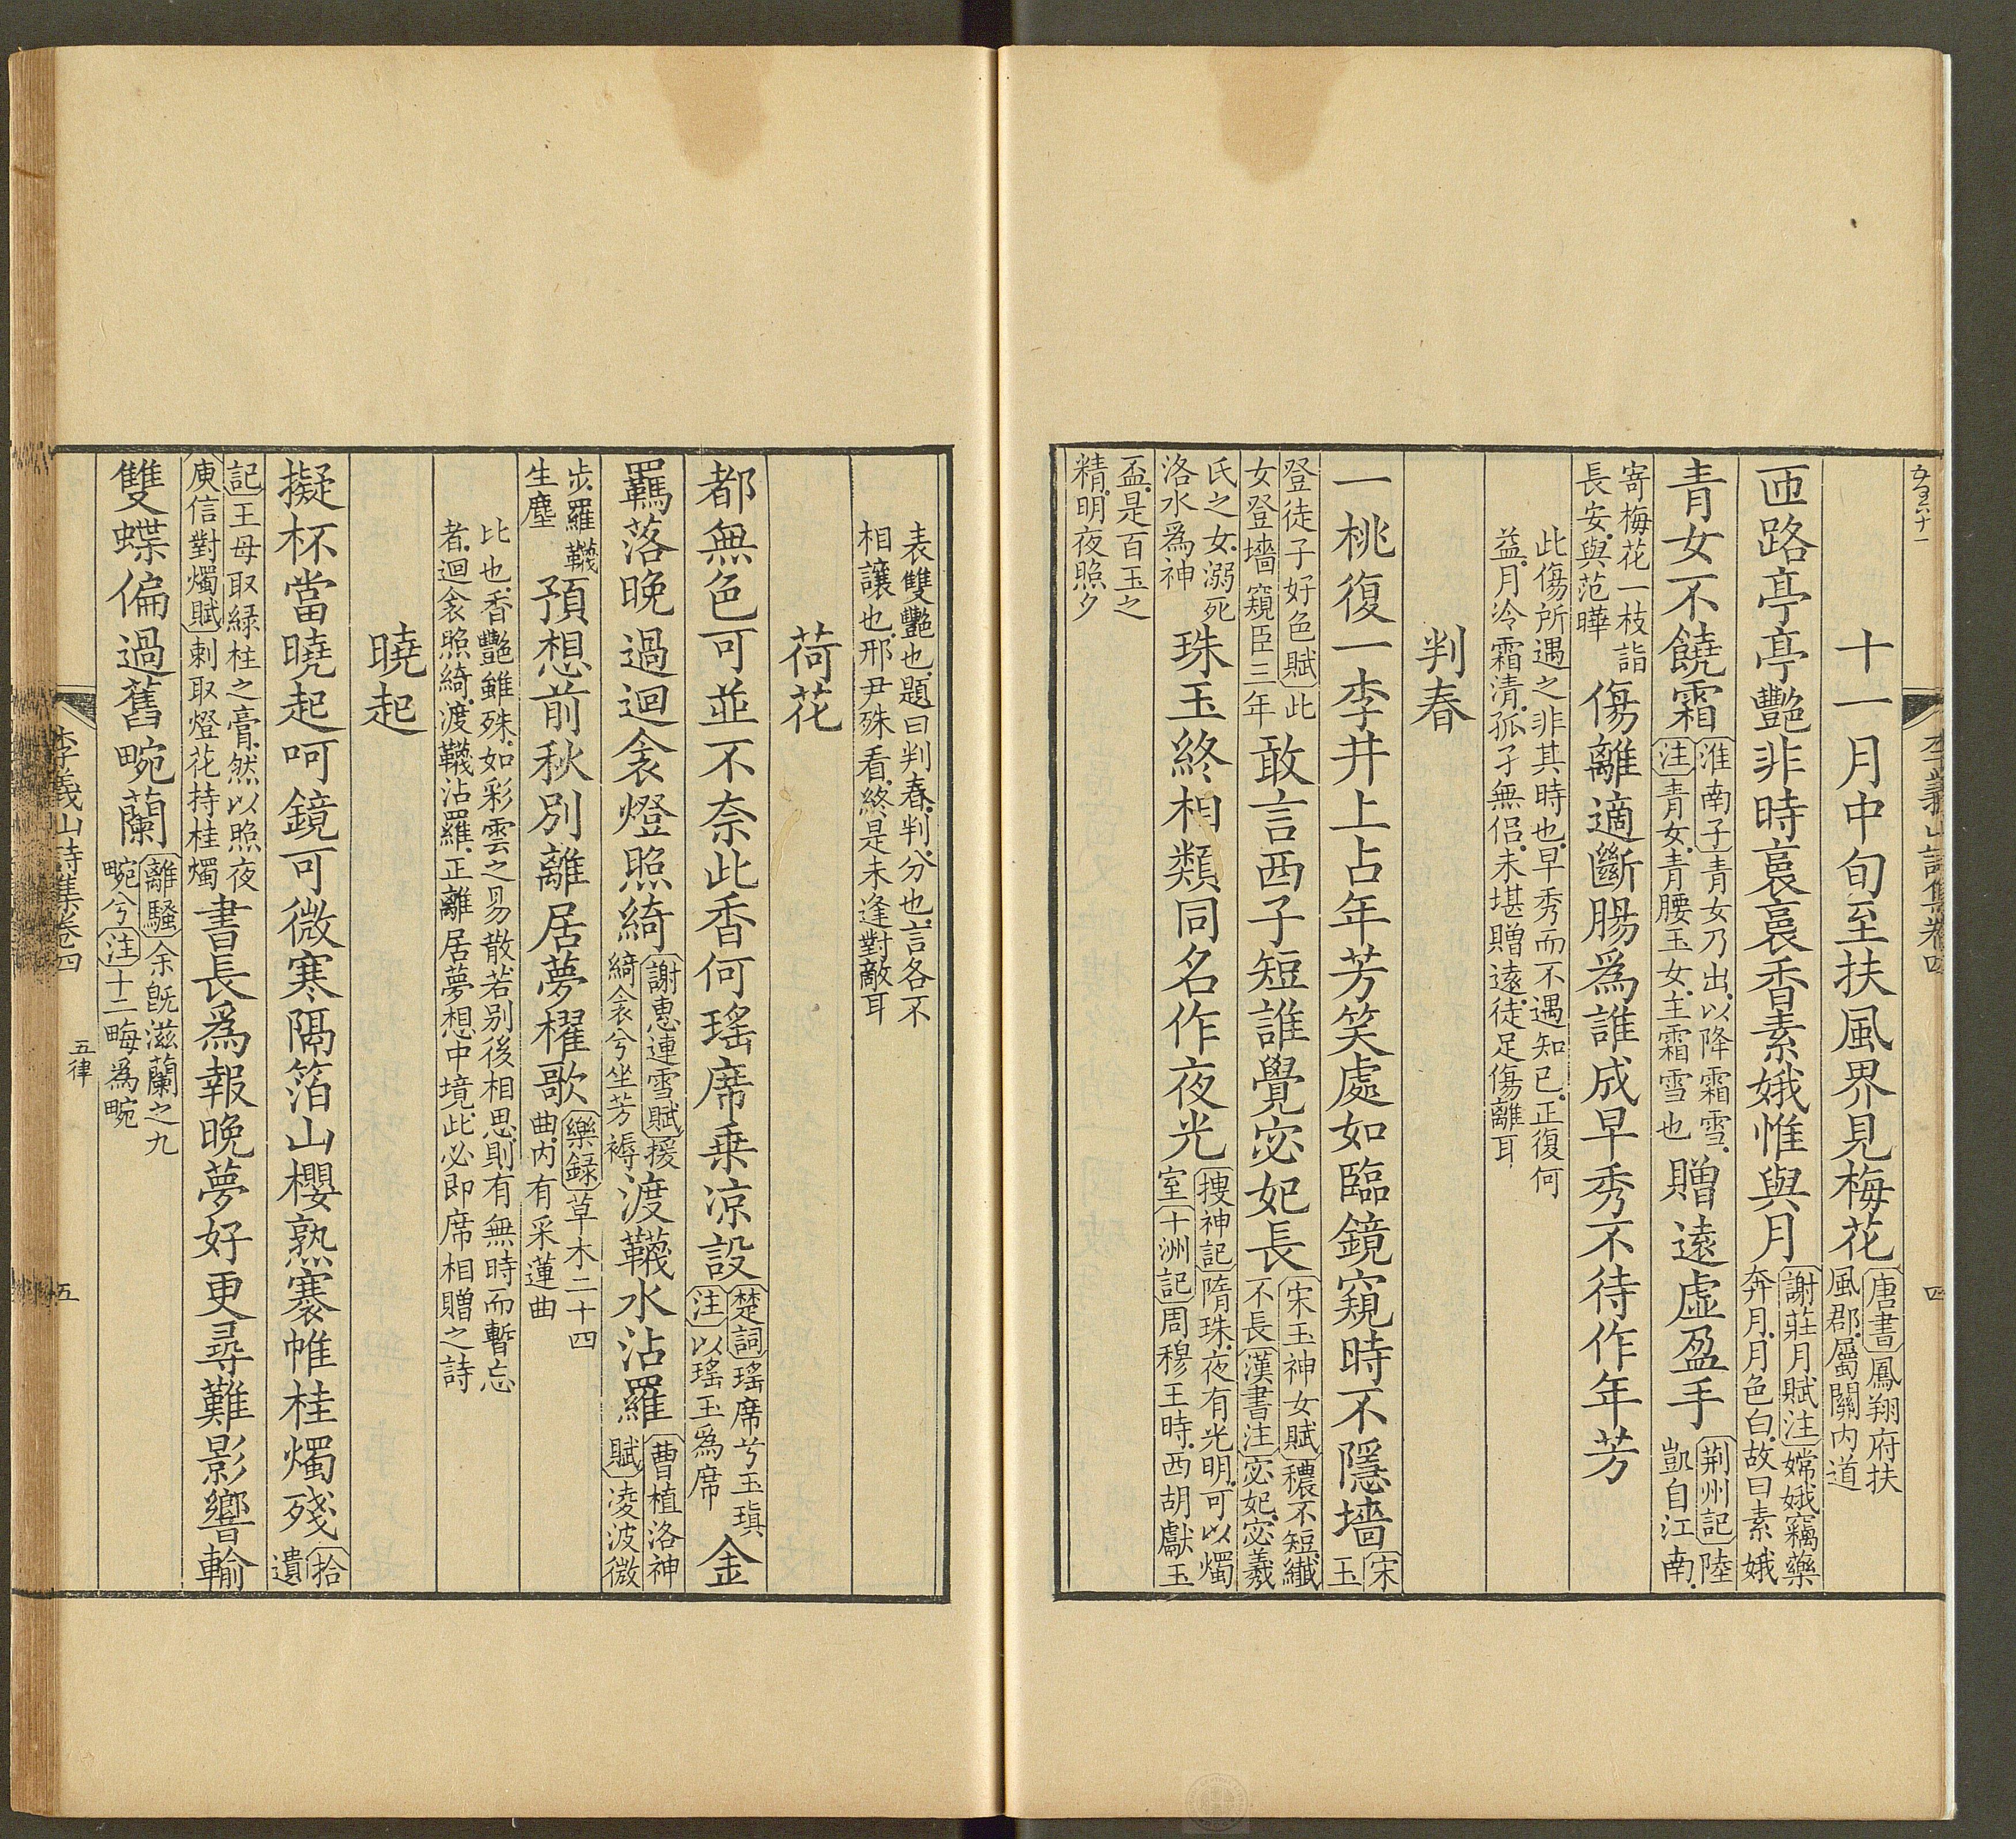 李義山詩集卷四
四
十一月中旬至扶風界見梅花
唐書鳳翔府扶
風郡屬關内道
匝路亭亭艷非時裛裛香素娥惟與月
謝莊月賦注嫦娥竊藥
奔月月色白故曰素娥
青女不饒霜
淮南子青女乃出以降霜雪
注青女青腰玉女主霜雪也
贈遠虚盈手
荆州記陸
凱自江南
寄梅花一枝詣
長安與范曄
傷離適斷腸爲誰成早秀不待作年芳
此傷所遇之非其時也早秀而不遇知已正復何
益月冷霜清孤孑無侣未堪贈遠徒足傷離耳
判春
一桃復一李井上占年芳笑處如臨鏡窺時不隱墻
宋
玉
登徒子好色賦此
女登墻窺臣三年
敢言西子短誰覺宓妃長
宋玉神女賦穠不短纖
不長漢書注宓妃宓羲
氏之女溺死
洛水爲神
珠玉終相類同名作夜光
搜神記隋珠夜有光明可以燭
室十洲記周穆王時西胡獻玉
盃是百玉之
精明夜照夕
表雙艷也題曰判春判分也言各不
相讓也邢尹殊看終是未逢對敵耳
荷花
都無色可並不奈此香何瑤席乗凉設
楚詞瑤席兮玉瑱
注以瑤玉爲席
金
羈落晚過迴衾燈照綺
謝惠連雪賦援
綺衾兮坐芳褥
渡韈水沾羅
曹植洛神
賦凌波微
步羅韈
生塵
預想前秋别離居夢櫂歌
樂録草木二十四
曲内有采蓮曲
比也香艷雖殊如彩雲之易散若别後相思則有無時而暫忘
者迴衾照綺渡韈沾羅正離居夢想中境此必即席相贈之詩
曉起
擬杯當曉起呵鏡可微寒隔箔山櫻熟褰帷桂燭殘
拾
遺
記王母取緑柱之膏然以照夜
庾信對燭賦刺取燈花持桂燭
書長爲報晚夢好更尋難影響輸
雙蝶偏過舊畹蘭
離騷余旣滋蘭之九
畹兮注十二畮爲畹
李義山詩集卷四
五律
五